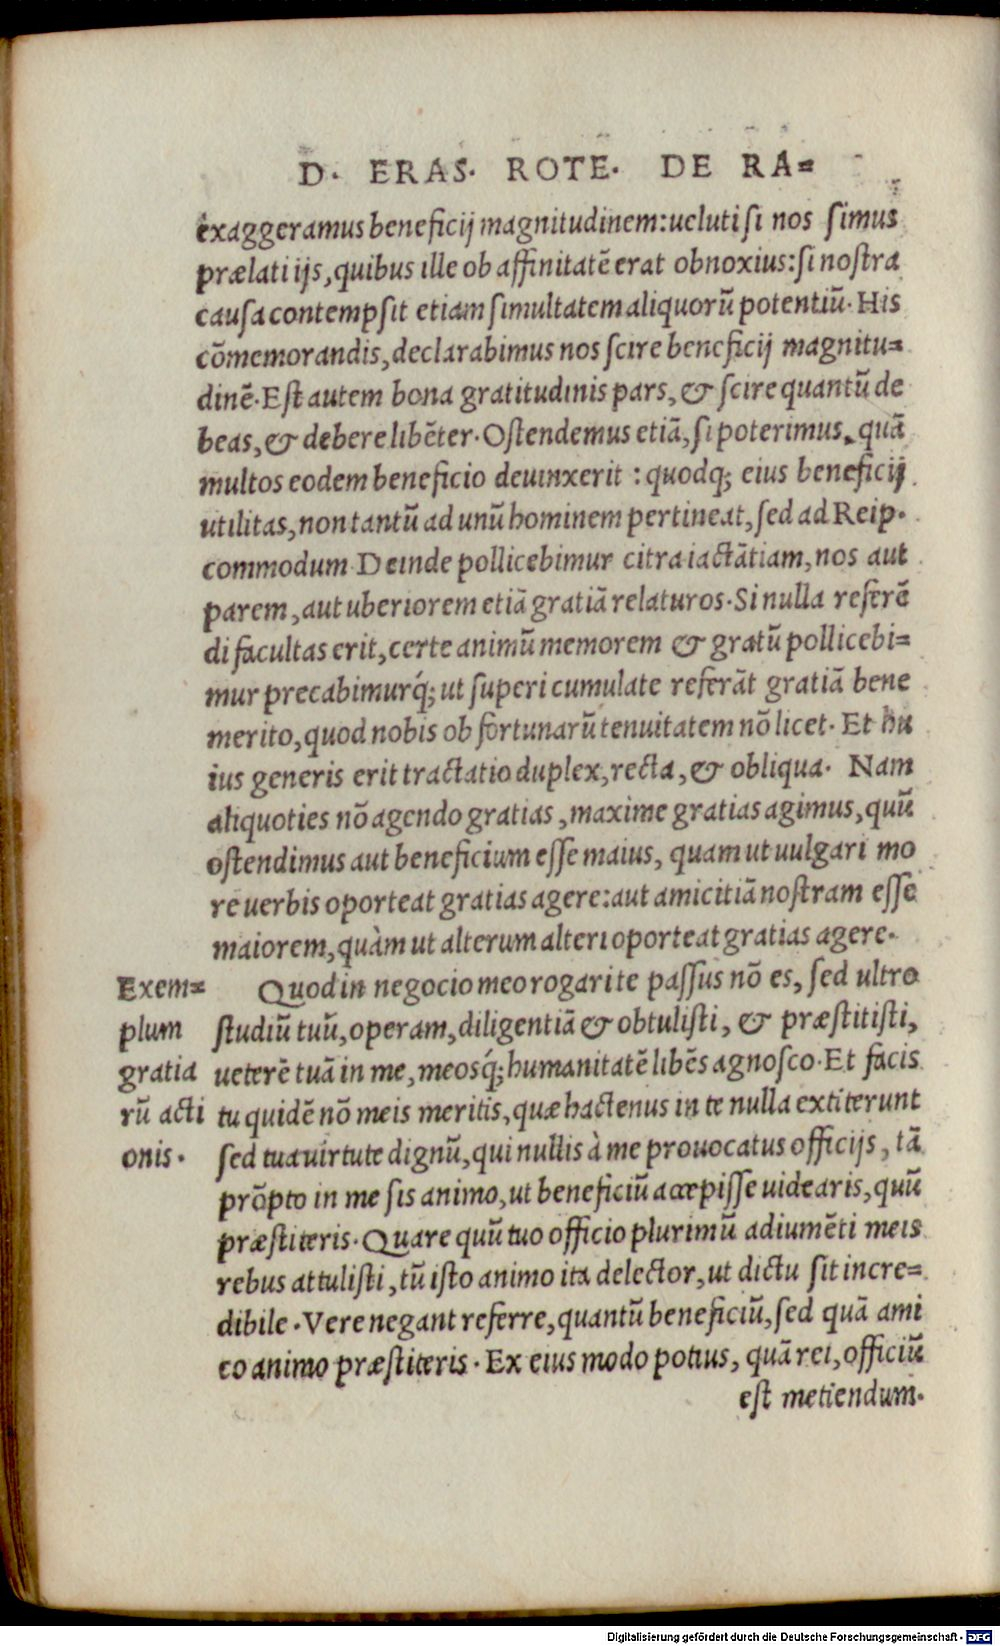 D. ERAS. ROTE. DE RA=
exaggeramus beneficij magnitudinem: ueluti si nos simus
prælati ijs, quibus ille ob affinitatē erat obnoxius: si nostra
causa contempsit etiam simultatem aliquorū potentiū. His
cōmemorandis, declarabimus nos scire beneficij magnitu=
dinē. Est autem bona gratitudinis pars, & scire quantū de
beas, & debere libēter. Ostendemus etiā, si poterimus, quā
multos eodem beneficio deuinxerit : quodq; eius beneficij
utilitas, non tantū ad unū hominem pertineat, sed ad Reip.
commodum. Deinde pollicebimur citra iactātiam, nos aut
parem, aut uberiorem etiā gratiā relaturos. Si nulla referē
di facultas erit, certe animū memorem & gratū pollicebi=
mur precabimurq́; ut superi cumulate referāt gratiā bene
merito, quod nobis ob fortunarū tenuitatem nō licet. Et hu
ius generis erit tractatio duplex, recta, & obliqua. Nam
aliquoties nō agendo gratias, maxime gratias agimus, quū
ostendimus aut beneficium esse maius, quam ut uulgari mo
re uerbis oporteat gratias agere: aut amicitiā nostram esse
maiorem, quàm ut alterum alteri oporteat gratias agere.
Exem=
plum
gratia
rū acti
onis.
Quod in negocio meo rogari te passus nō es, sed ultro
studiū tuū, operam, diligentiā & obtulisti, & præstitisti,
ueterē tuā in me, meosq́; humanitatē libēs agnosco. Et facis
tu quidē nō meis meritis, quæ hactenus in te nulla extiterunt
sed tua uirtute dignū, qui nullis à me prouocatus officijs, tā
prōpto in me sis animo, ut beneficiū accepisse uidearis, quū
præstiteris. Quare quū tuo officio plurimū adiumēti meis
rebus attulisti, tū isto animo ita delector, ut dictu sit incre=
dibile. Vere negant referre, quantū beneficiū, sed quā ami
co animo præstiteris. Ex eius modo potius, quā rei, officiū
est metiendum.
Digitalisierung gefördert durch die Deutsche Forschungsgemeinschaft - DFG